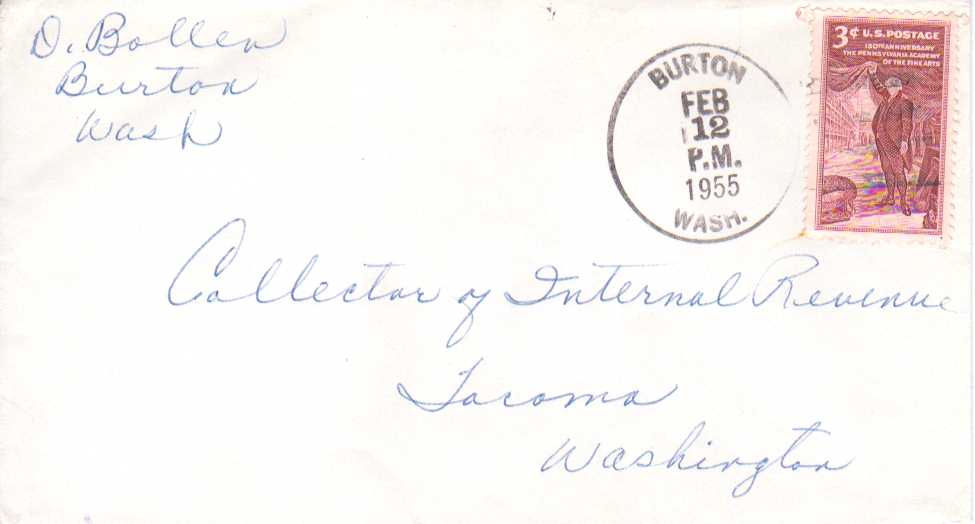 D. Bollen
Burton
Wash
3¢ U.S. POSTAGE
150TH ANNIVERSARY
THE PENNSYLVANIA ACADEMY
OF THE FINE ARTS
BURTON
FEB
12
P.M.
1955
WASH.
Collector of Internal Revenue
Tacoma
Washington